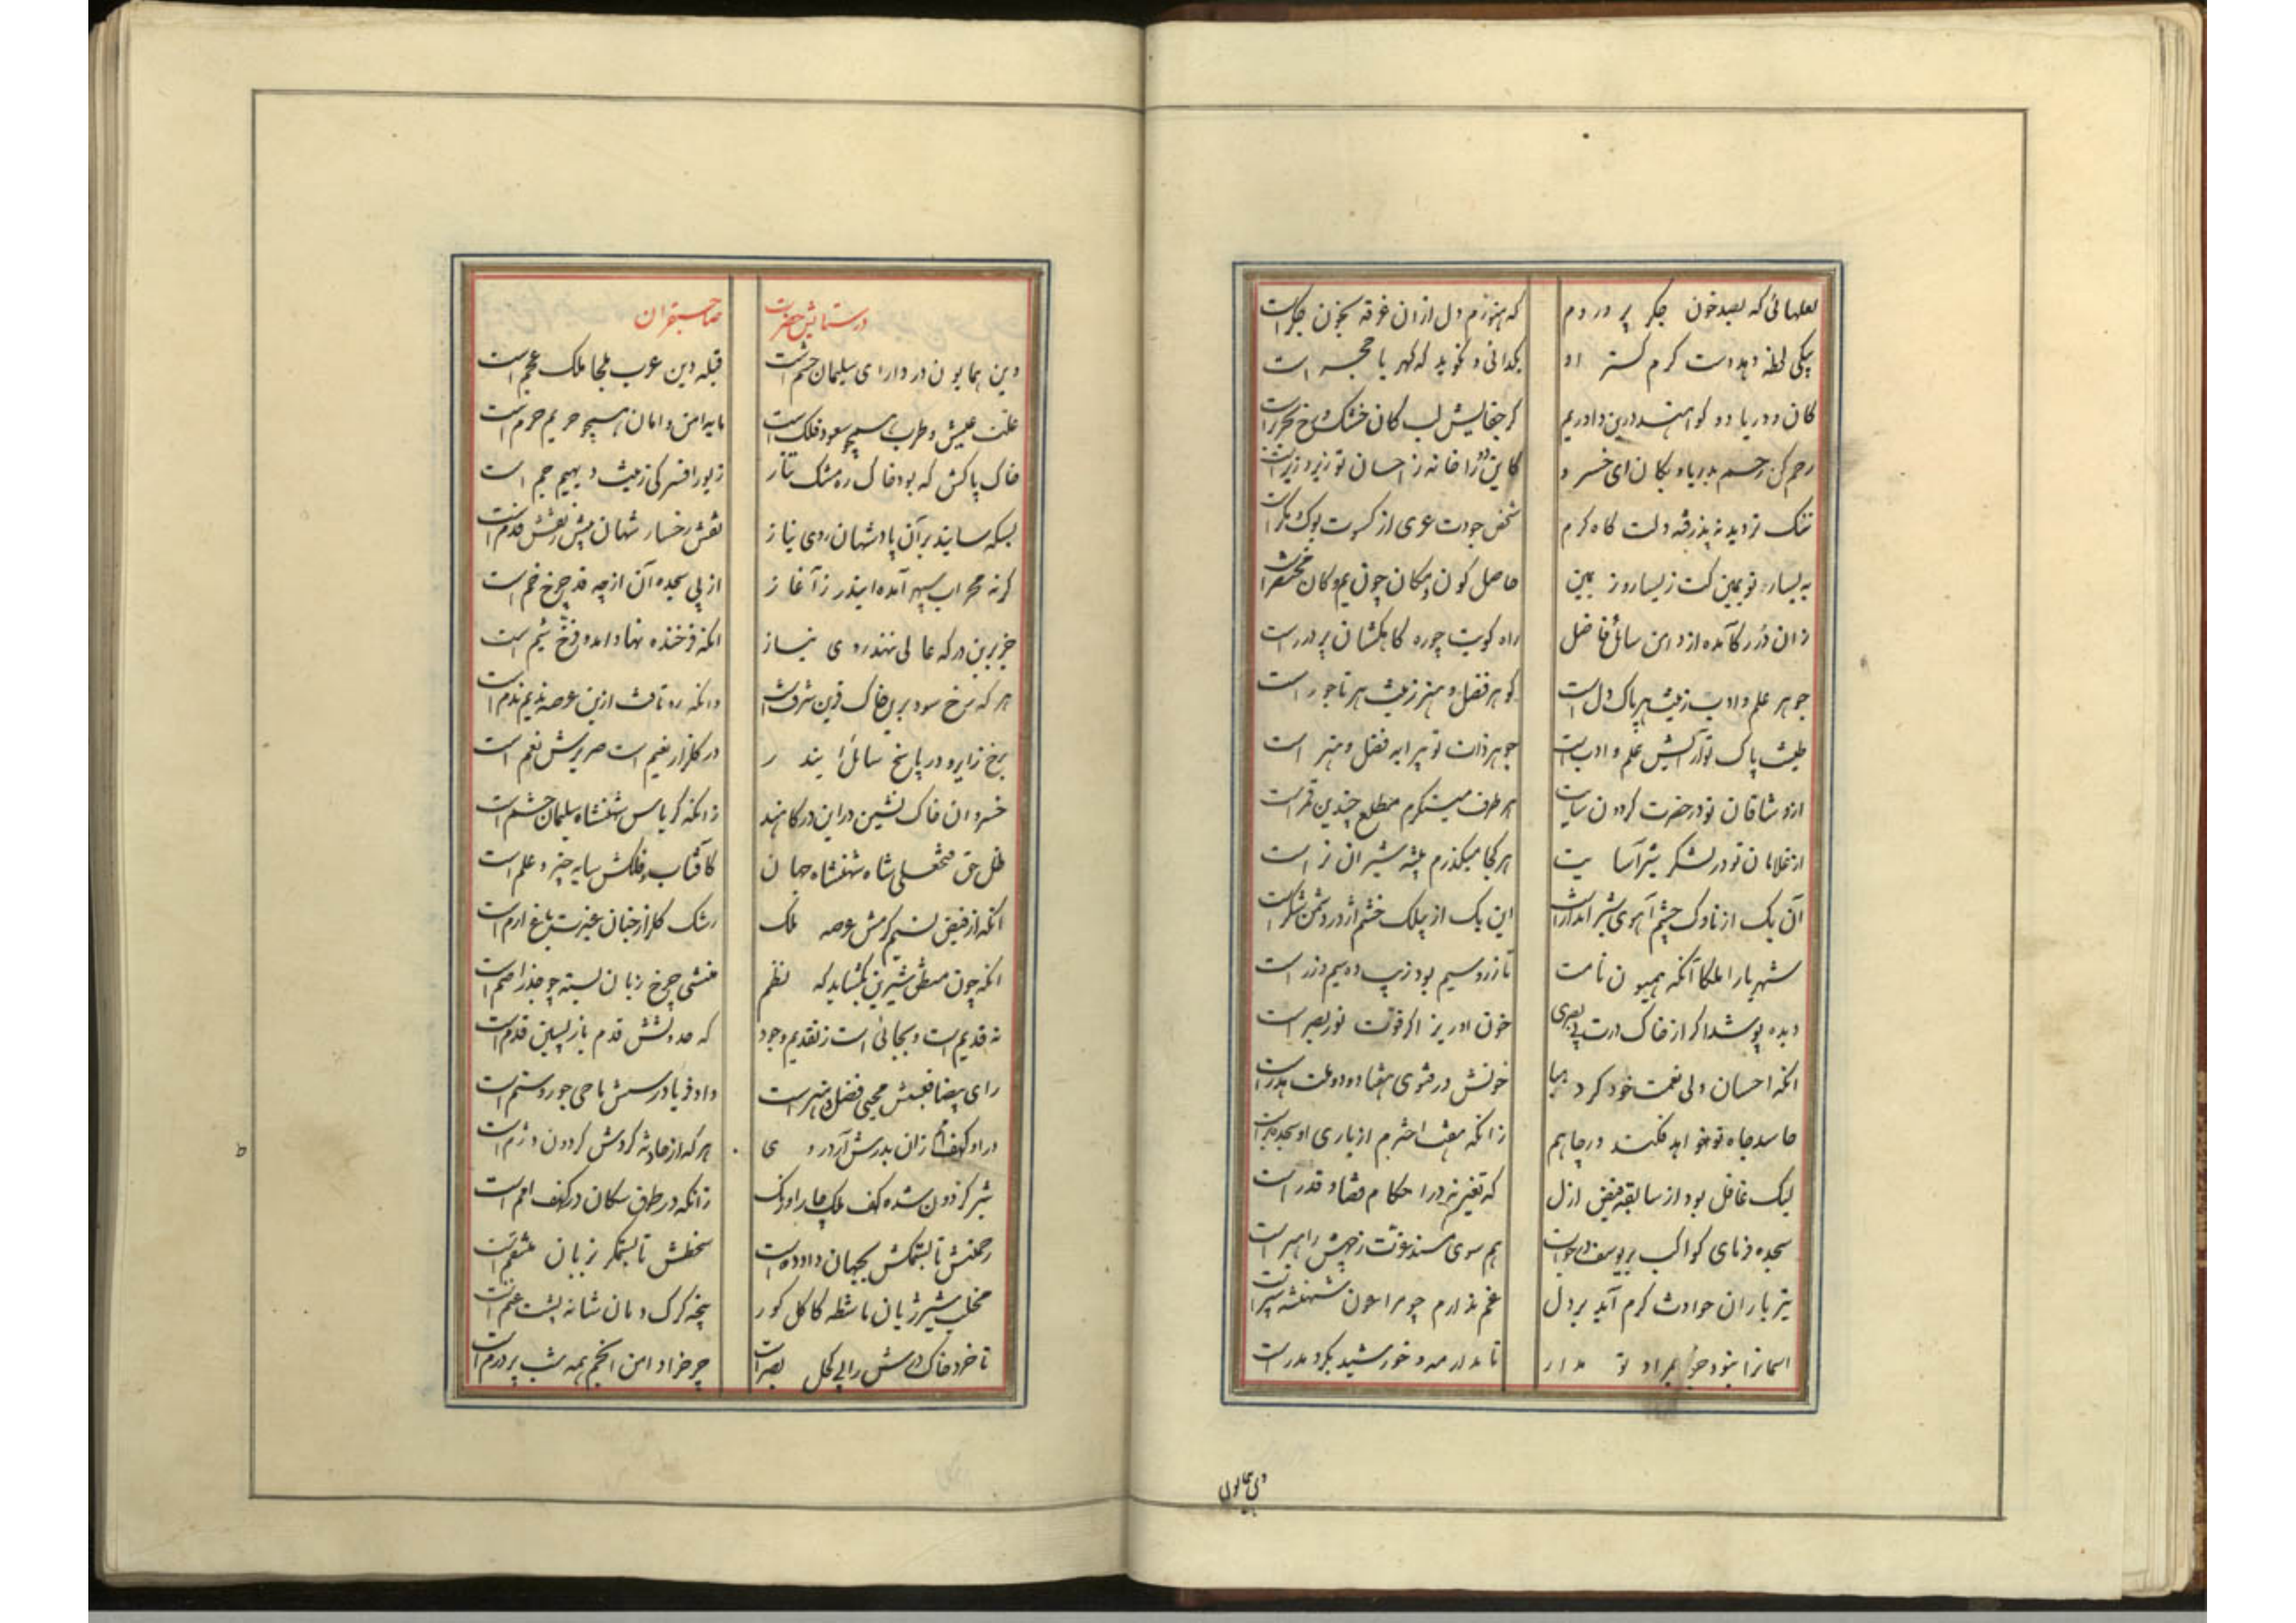 لعلهائی که بصد خون جگر پروردم
که هنوزم دل ازان غرقه بخون جگر است
بیکی لحظه دهد دست کرم گستر او
بگدائی و نگوید که گهر یا حجر است
کان و دریا دو گواهند درین داوریم
کز جفایش لب کان خشک و رخ بحر تر است
رحم کن رحم بدریا و بکان ای خسرو
کاین دو را خانه ز احسان تو زیر و زبر است
شخص جودت عری از کسوت بوک و مگر است
به یسار تو یمین کت ز یسار و ز یمین
حاصل کون و مکان چون یم و کان مختصر است
زان درر کآمده از دامن سائل فاضل
راه کویت چو ره کاهکشان پر درر است
جوهر علم و ادب زینت هر پاک دل است
گوهر فضل و هنر زینت هر تاجور است
طینت پاک تو آرایش علم و ادب است
جوهر ذات تو پیرایه فضل و هنر است
از وشاقان تو در حضرت گردون سایت
هر طرف مینگرم مطلع چندین قمر است
از غلامان تو در لشکر شیر آسایت
هر کجا میگذرم بیشه شیران نر است
آن یک از ناوک چشم آهوی شیر اندازاست
این یک از بیلک خشم اژدر دشمن شکر است
شهریارا ملکا آنکه همیون نامت
تا زر و سیم بود زیب ده سیم و زر است
دیده پوشد اگر از خاک درت بی بصری
خون او ریز اگر قوت نور بصر است
آنکه احسان ولی نعمت خود کرد هبا
خونش در فتوی هفتاد و دو ملت هدر است
حاسد جاه تو خواهد فکند در چاهم
لیک غافل بود از سابقه فیض ازل
که تغییر نه در احکام قضا و قدر است
سجده فرمای کواکب بر یوسف در خواب
هم سوی مسند عزت ز چهش راهبر است
تیر باران حوادث گرم آید بر دل
غم ندارم چو مرا عون شهنشه سپر است
آسمانرا نبود جز بمراد تو مدار
تا مدار مه و خورشید بگرد مدر است
در ستایش حضرت
صاحبقران
وین همایون در دارای سلیمان حشم است
قبله دین عرب ملجا ملک عجم است
علت عیش و طرب همچو سعود فلک است
مایه امن و امان همچو حریم حرم است
خاک پاکش که بود خاک ره مشک تتار
زیور افسر کی زینت دیهیم جم است
بسکه سایند بر آن پادشهان روی نیاز
نقش رخسار شهان بیش ز نقش قدم است
گرنه محراب سپهر آمده این در ز آغاز
از پی سجده آن از چه قد چرخ خم است
جز برین درگه عالی ننهد روی نیاز
آنکه فرخنده نهاد آمد و فرخ شیم است
هر که رخ سود برین خاک قرین شرف است
وانکه رو تافت ازین عرصه ندیم ندم است
خسروان خاک نشین در این درگاهند
زانکه کریاس شهنشاه سلیمان حشم است
ظل حق فتحعلی شاه شهنشاه جهان
کآفتاب فلکش سایه چتر و علم است
آنکه از فیض نسیم کرمش عرصه ملک
رشک گلزار جنان غیرت باغ ارم است
آنکه چون منطق شیرین بگشاید که نظم
منشی چرخ زبان بسته چو جذر اصم است
نه قدیم است و بجائی است ز تقدیم وجود
که حدوثش قدم باز پسین قدم است
رای بیضا قبسش محیی فضل و هنر است
داد فریادرسش ماحی جور و ستم است
هر که از حادثه گردش گردون دژم است
زانکه در طرف سکان در کهف امم است
رحمتش تا بستمکش بجهان داده است
سخطش تا بستمگر بزبان منتقم است
مخلب شیر ژیان ماشطه کاکل گور
پنجه گرگ دمان شانه پشت غنم است
تا خرد خاک درش را پی کحل بصر است
چرخ را دامن انجم همه شب پر درم است
وین همایون